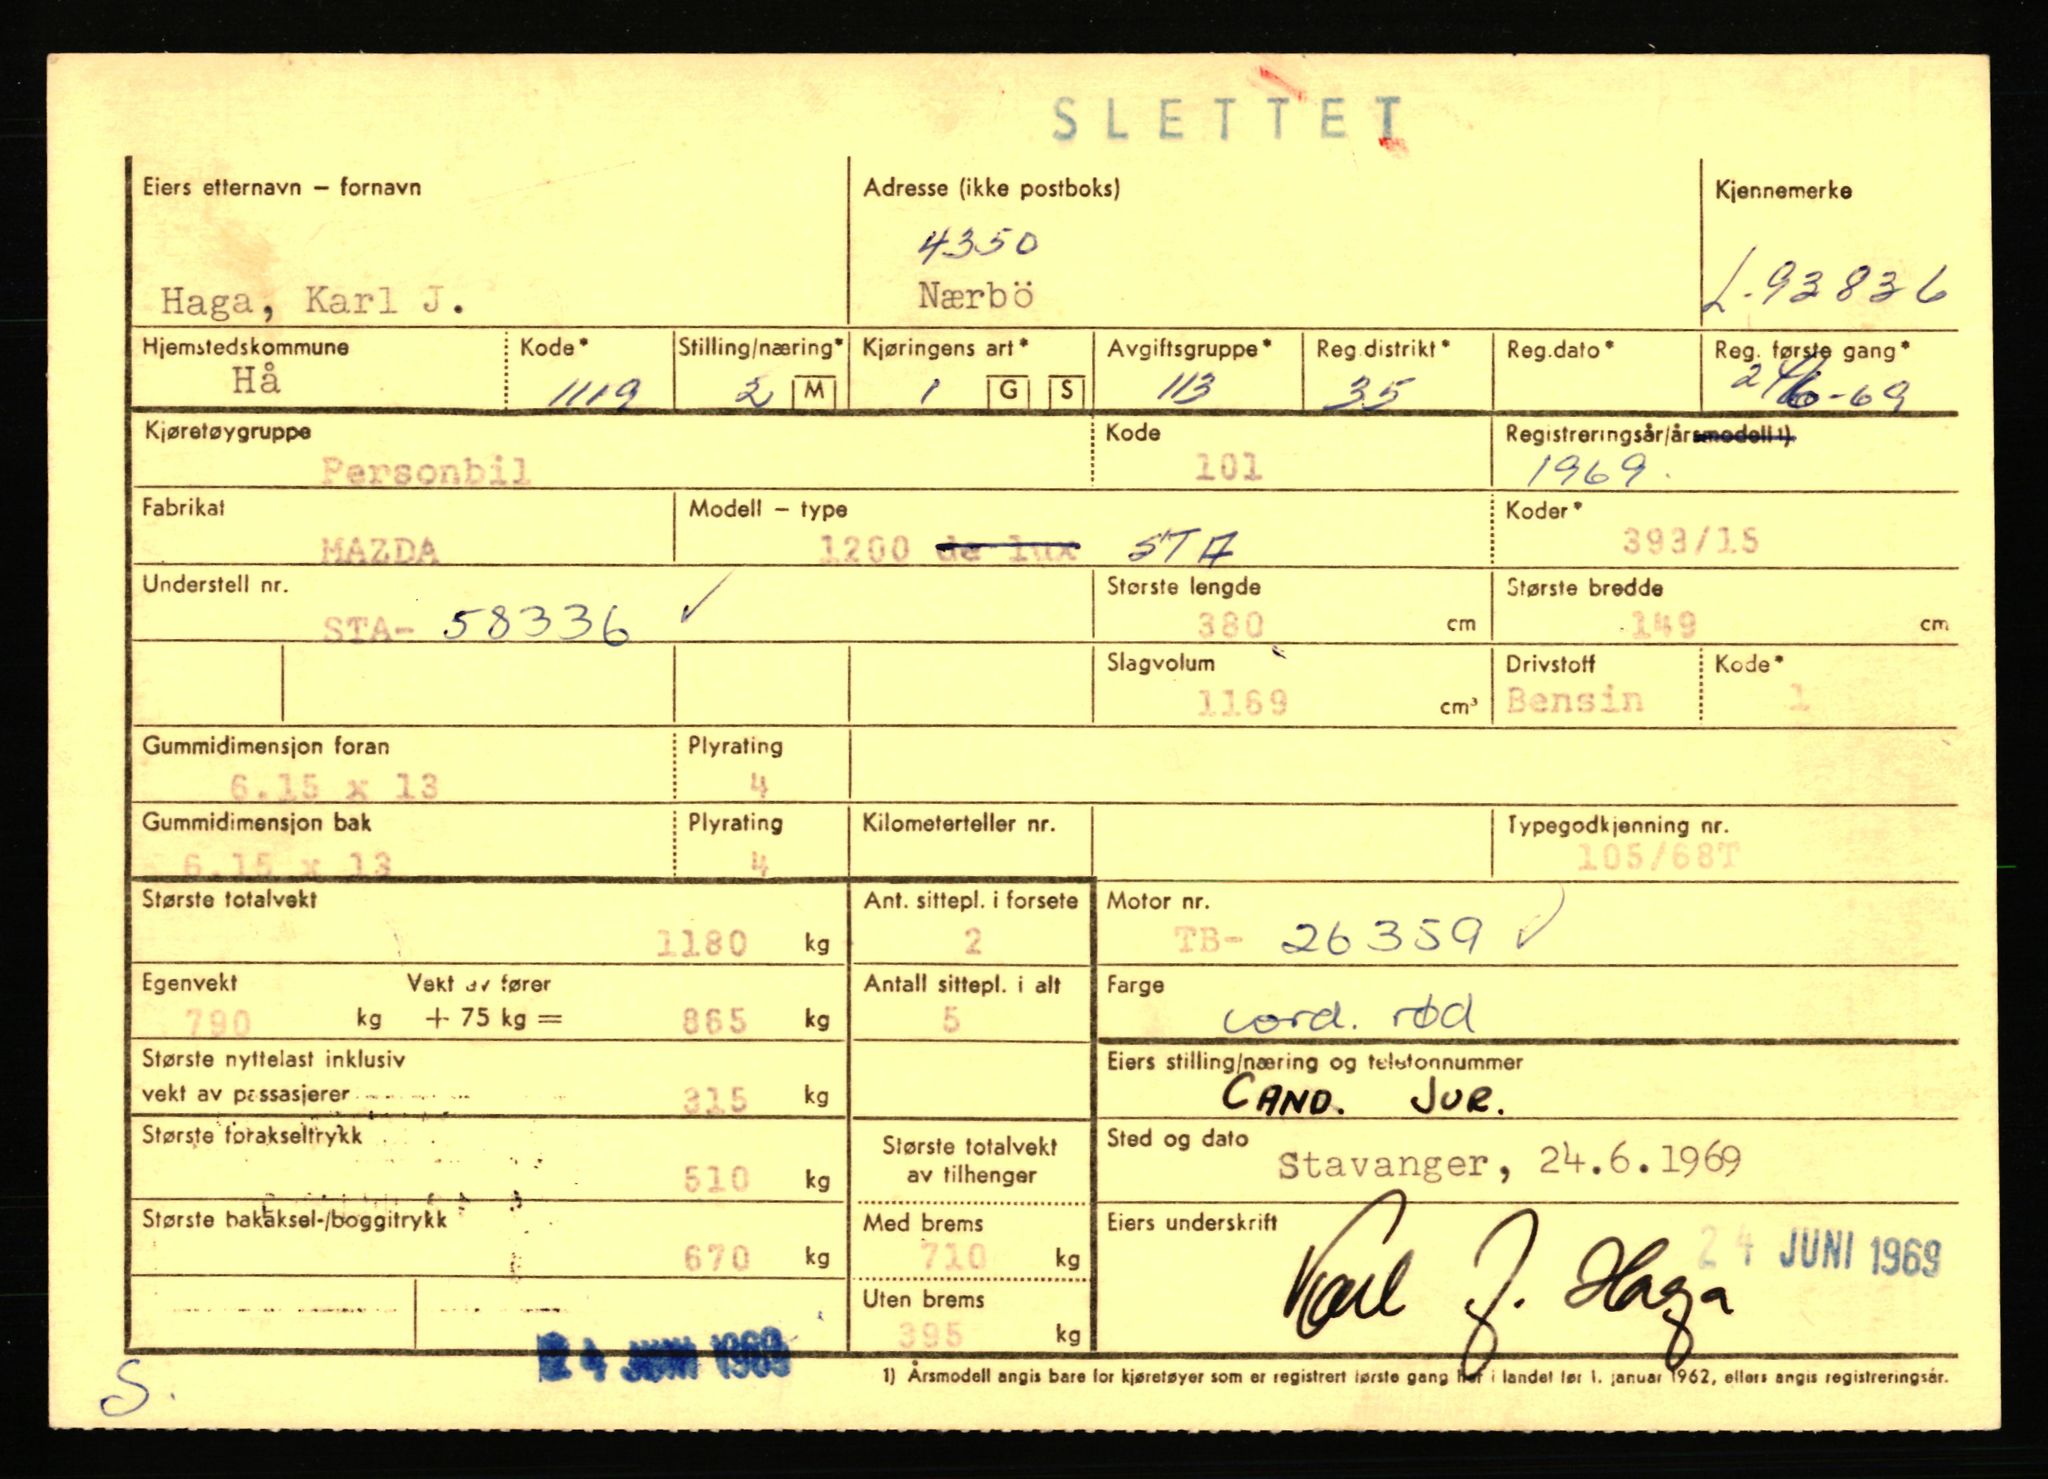 SLETTET
Eiers etternavn – fornavn
Adresse (ikke postboks)
Kjennemerke
4350
Haga, Karl J.
Nærbö
L-93836
Hjemstedskommune
Kode*
Stilling/næring*
Kjøringens art*
Avgiftsgruppe*
Reg.distrikt*
Reg.dato*
Reg. første gang*
Hå
1119
2 M
1 G S
113
35
24/6-69
Kjøretøygruppe
Kode
Registreringsår/årsmodell 1)
Personbil
101
1969.
Fabrikat
Modell – type
Koder*
MAZDA
1200 de lux STA
393/15
Understell nr.
Største lengde
Største bredde
STA- 58336 ✓
380 cm
149 cm
Slagvolum
Drivstoff
Kode*
1169 cm³
Bensin
1
Gummidimensjon foran
Plyrating
6.15 x 13
4
Gummidimensjon bak
Plyrating
Kilometerteller nr.
Typegodkjenning nr.
6.15 x 13
4
105/68T
Største totalvekt
Ant. sittepl. i forsete
Motor nr.
1180 kg
2
TB- 26359 ✓
Egenvekt
Vekt av fører
Antall sittepl. i alt
Farge
790 kg + 75 kg = 865 kg
5
cord. rød
Største nyttelast inklusiv
vekt av passasjerer
315 kg
Eiers stilling/næring og telefonnummer
CAND. JUR.
Største forakseltrykk
510 kg
Største totalvekt
av tilhenger
Sted og dato
Stavanger, 24.6.1969
Største bakaksel-/boggitrykk
670 kg
Med brems
710 kg
Eiers underskrift
24 JUNI 1969
Karl J. Haga
Uten brems
395 kg
24 JUNI 1969
S.
1) Årsmodell angis bare for kjøretøyer som er registrert første gang her i landet før 1. januar 1962, ellers angis registreringsår.